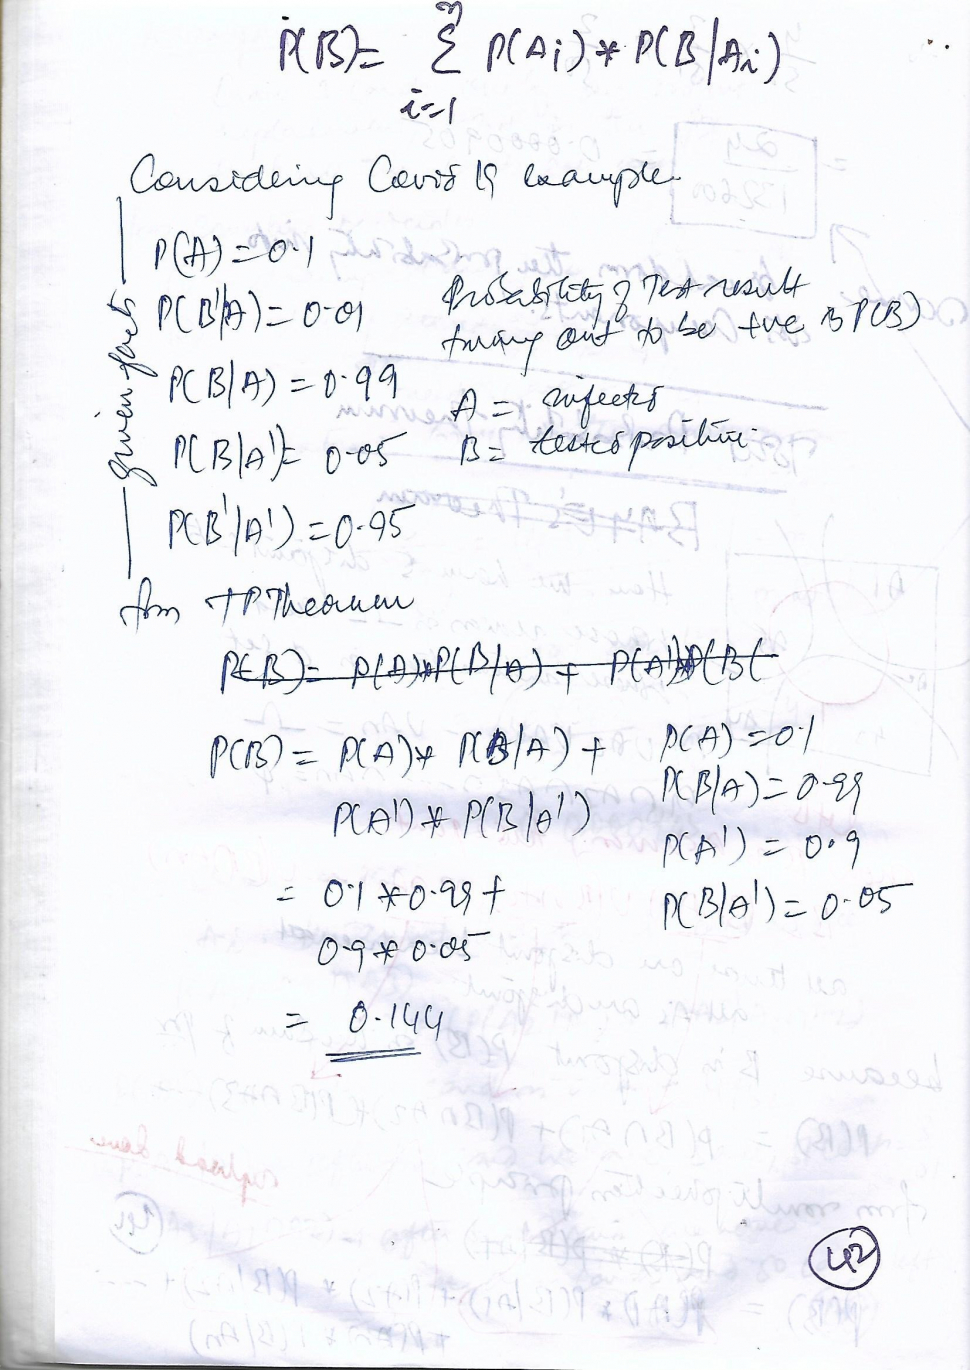 n
P(B)= Σ P(Ai) * P(B/Ai)
i=1
Considering Covid 19 example.
given facts
P(A) = 0.1
P(B'/A) = 0.01
P(B/A) = 0.99
P(B/A') = 0.05
P(B'/A') = 0.95
Probability of Test result
turing out to be +ve is P(B)
A = infected
B = tested positive.
from TP Theorem
P(B) = P(A)*P(B/A) + P(A')*P(B(
P(B) = P(A) * P(B/A) +
P(A') * P(B/A')
= 0.1 * 0.99 +
0.9 * 0.05
= 0.144
P(A) = 0.1
P(B/A) = 0.99
P(A') = 0.9
P(B/A') = 0.05
42